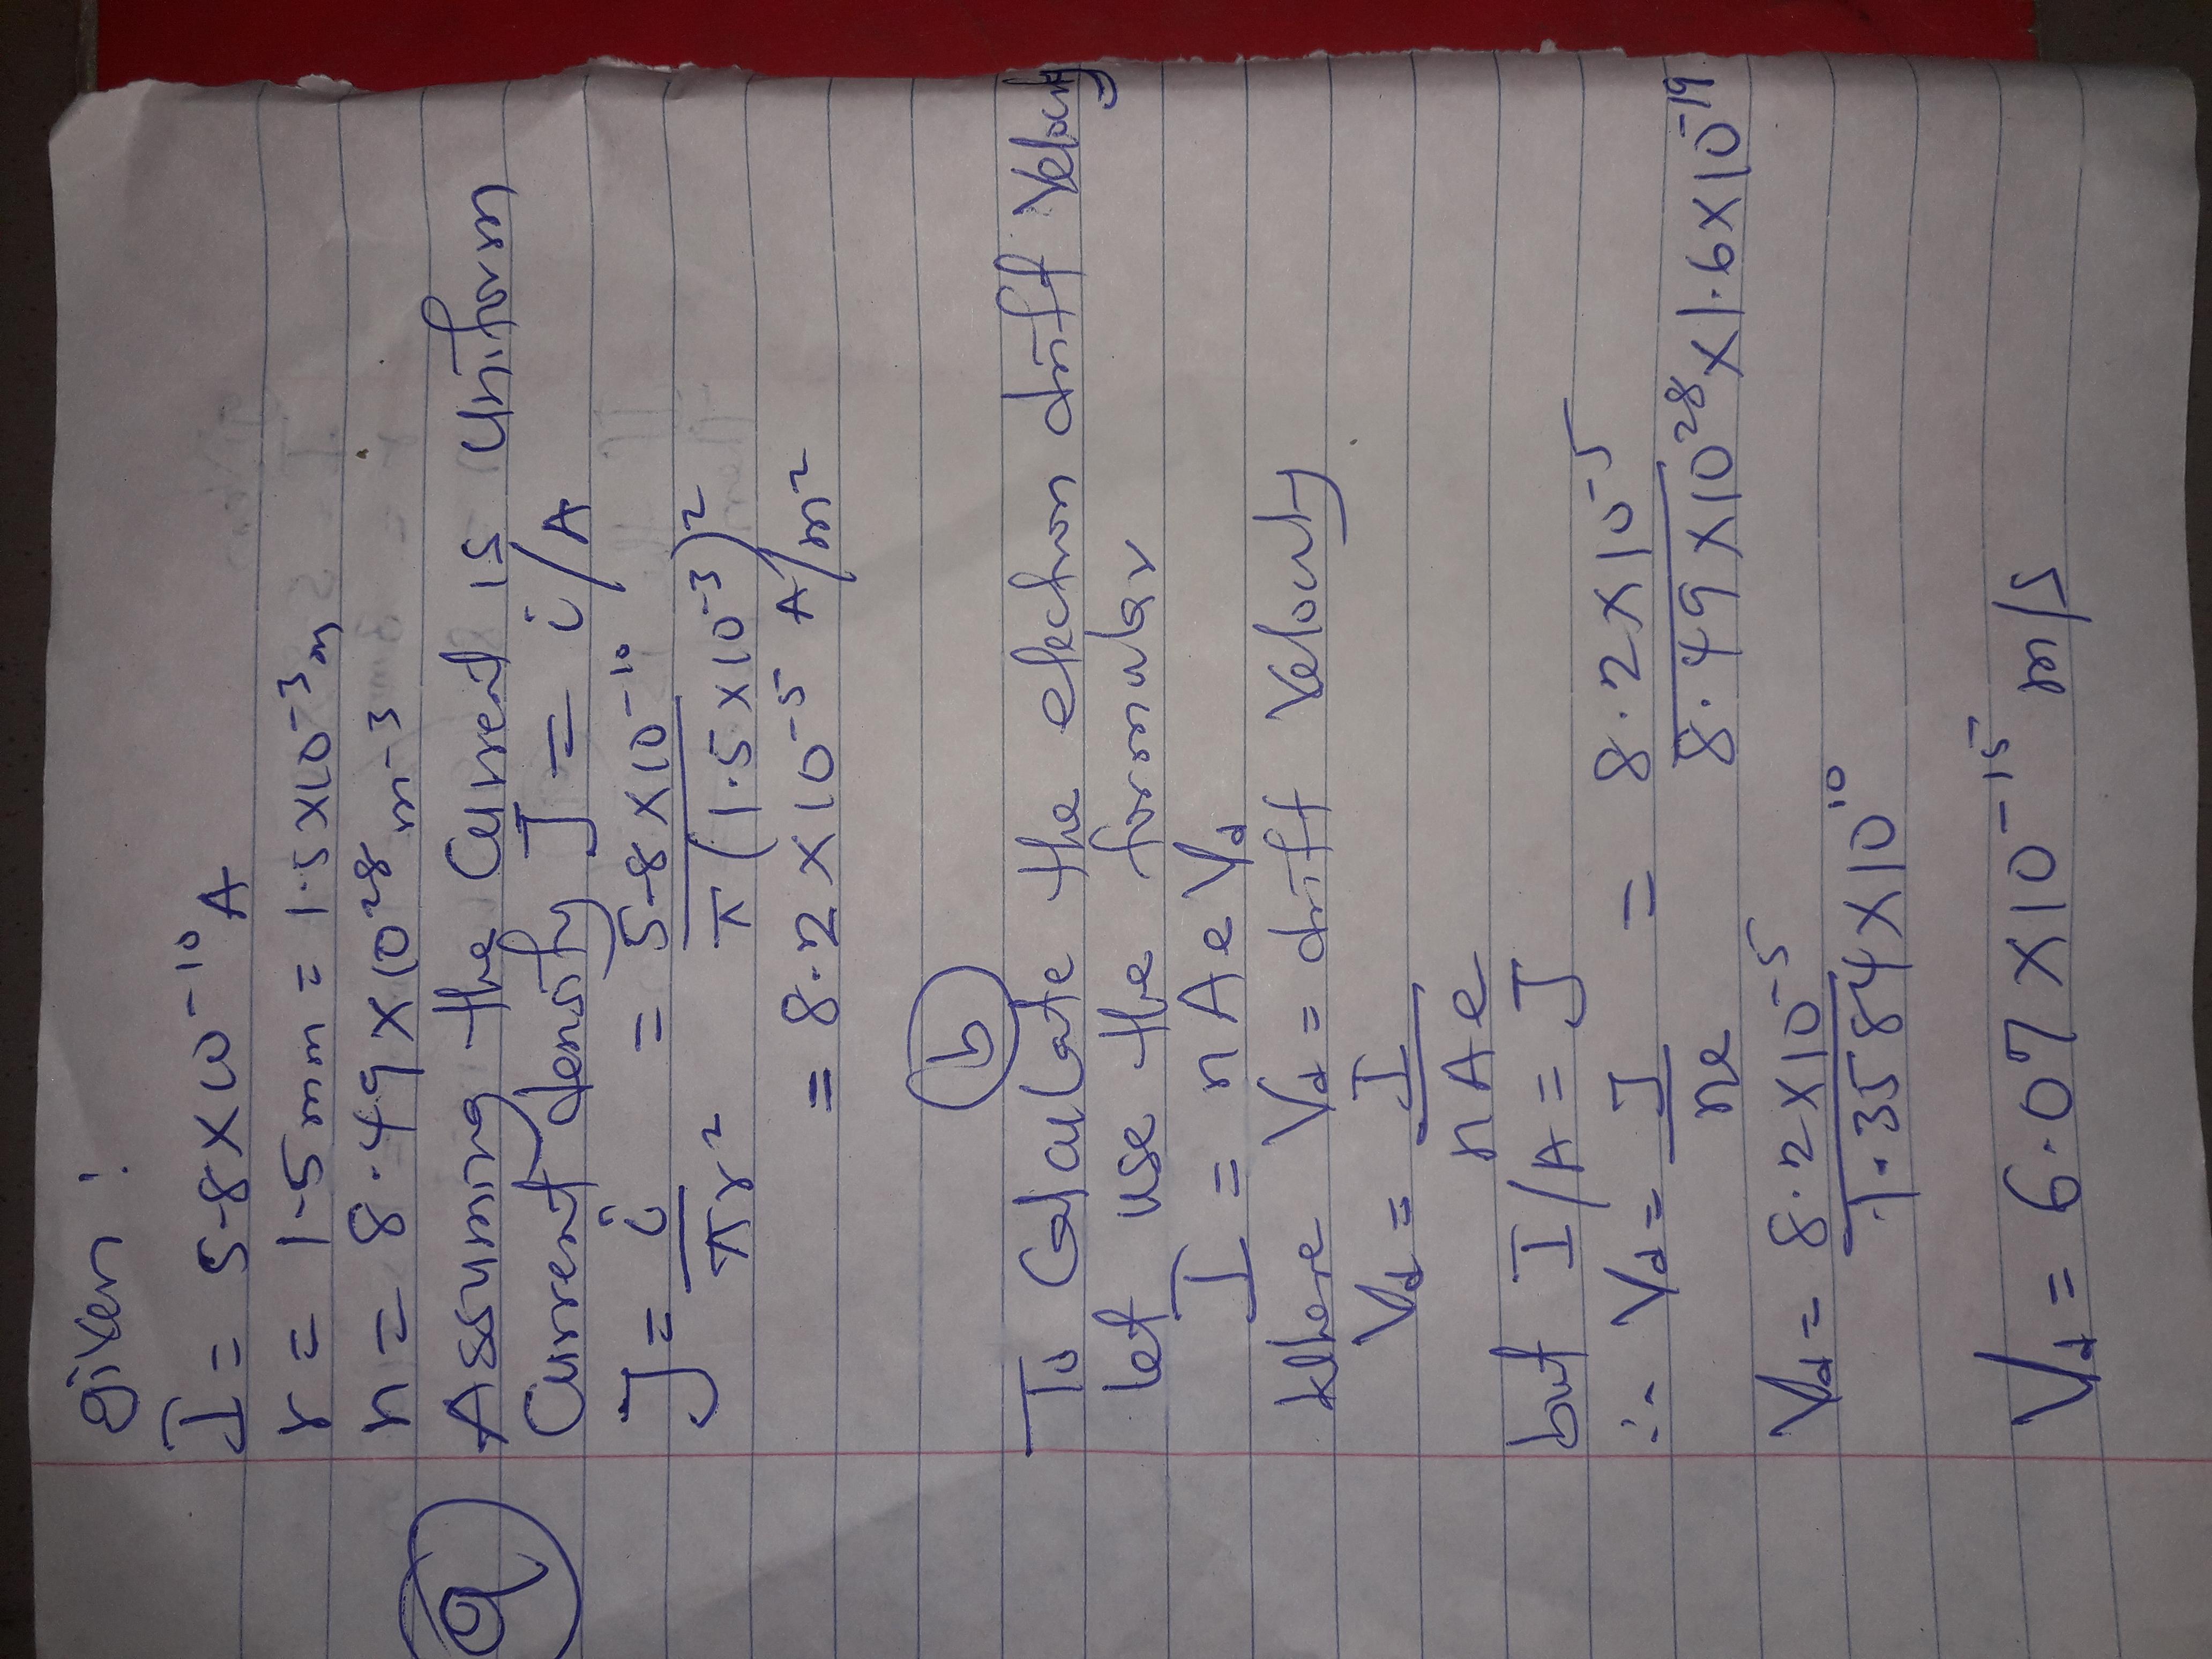 given:
I = 5.8 × 10⁻¹⁰ A
r = 1.5 mm = 1.5 × 10⁻³ m
n = 8.49 × 10²⁸ m⁻³
(a) Assuming the Current is uniform
Current density J = i/A
J = i/πr² = 5.8 × 10⁻¹⁰/π(1.5 × 10⁻³)²
= 8.2 × 10⁻⁵ A/m²
(b)
To Calculate the electron drift Velocity
let use the formular
I = n A e Vd
Where Vd = drift Velocity
Vd = I/nAe
but I/A = J
∴ Vd = J/ne = 8.2 × 10⁻⁵/8.49 × 10²⁸ × 1.6 × 10⁻¹⁹
Vd = 8.2 × 10⁻⁵/1.3584 × 10¹⁰
Vd = 6.07 × 10⁻¹⁵ m/s